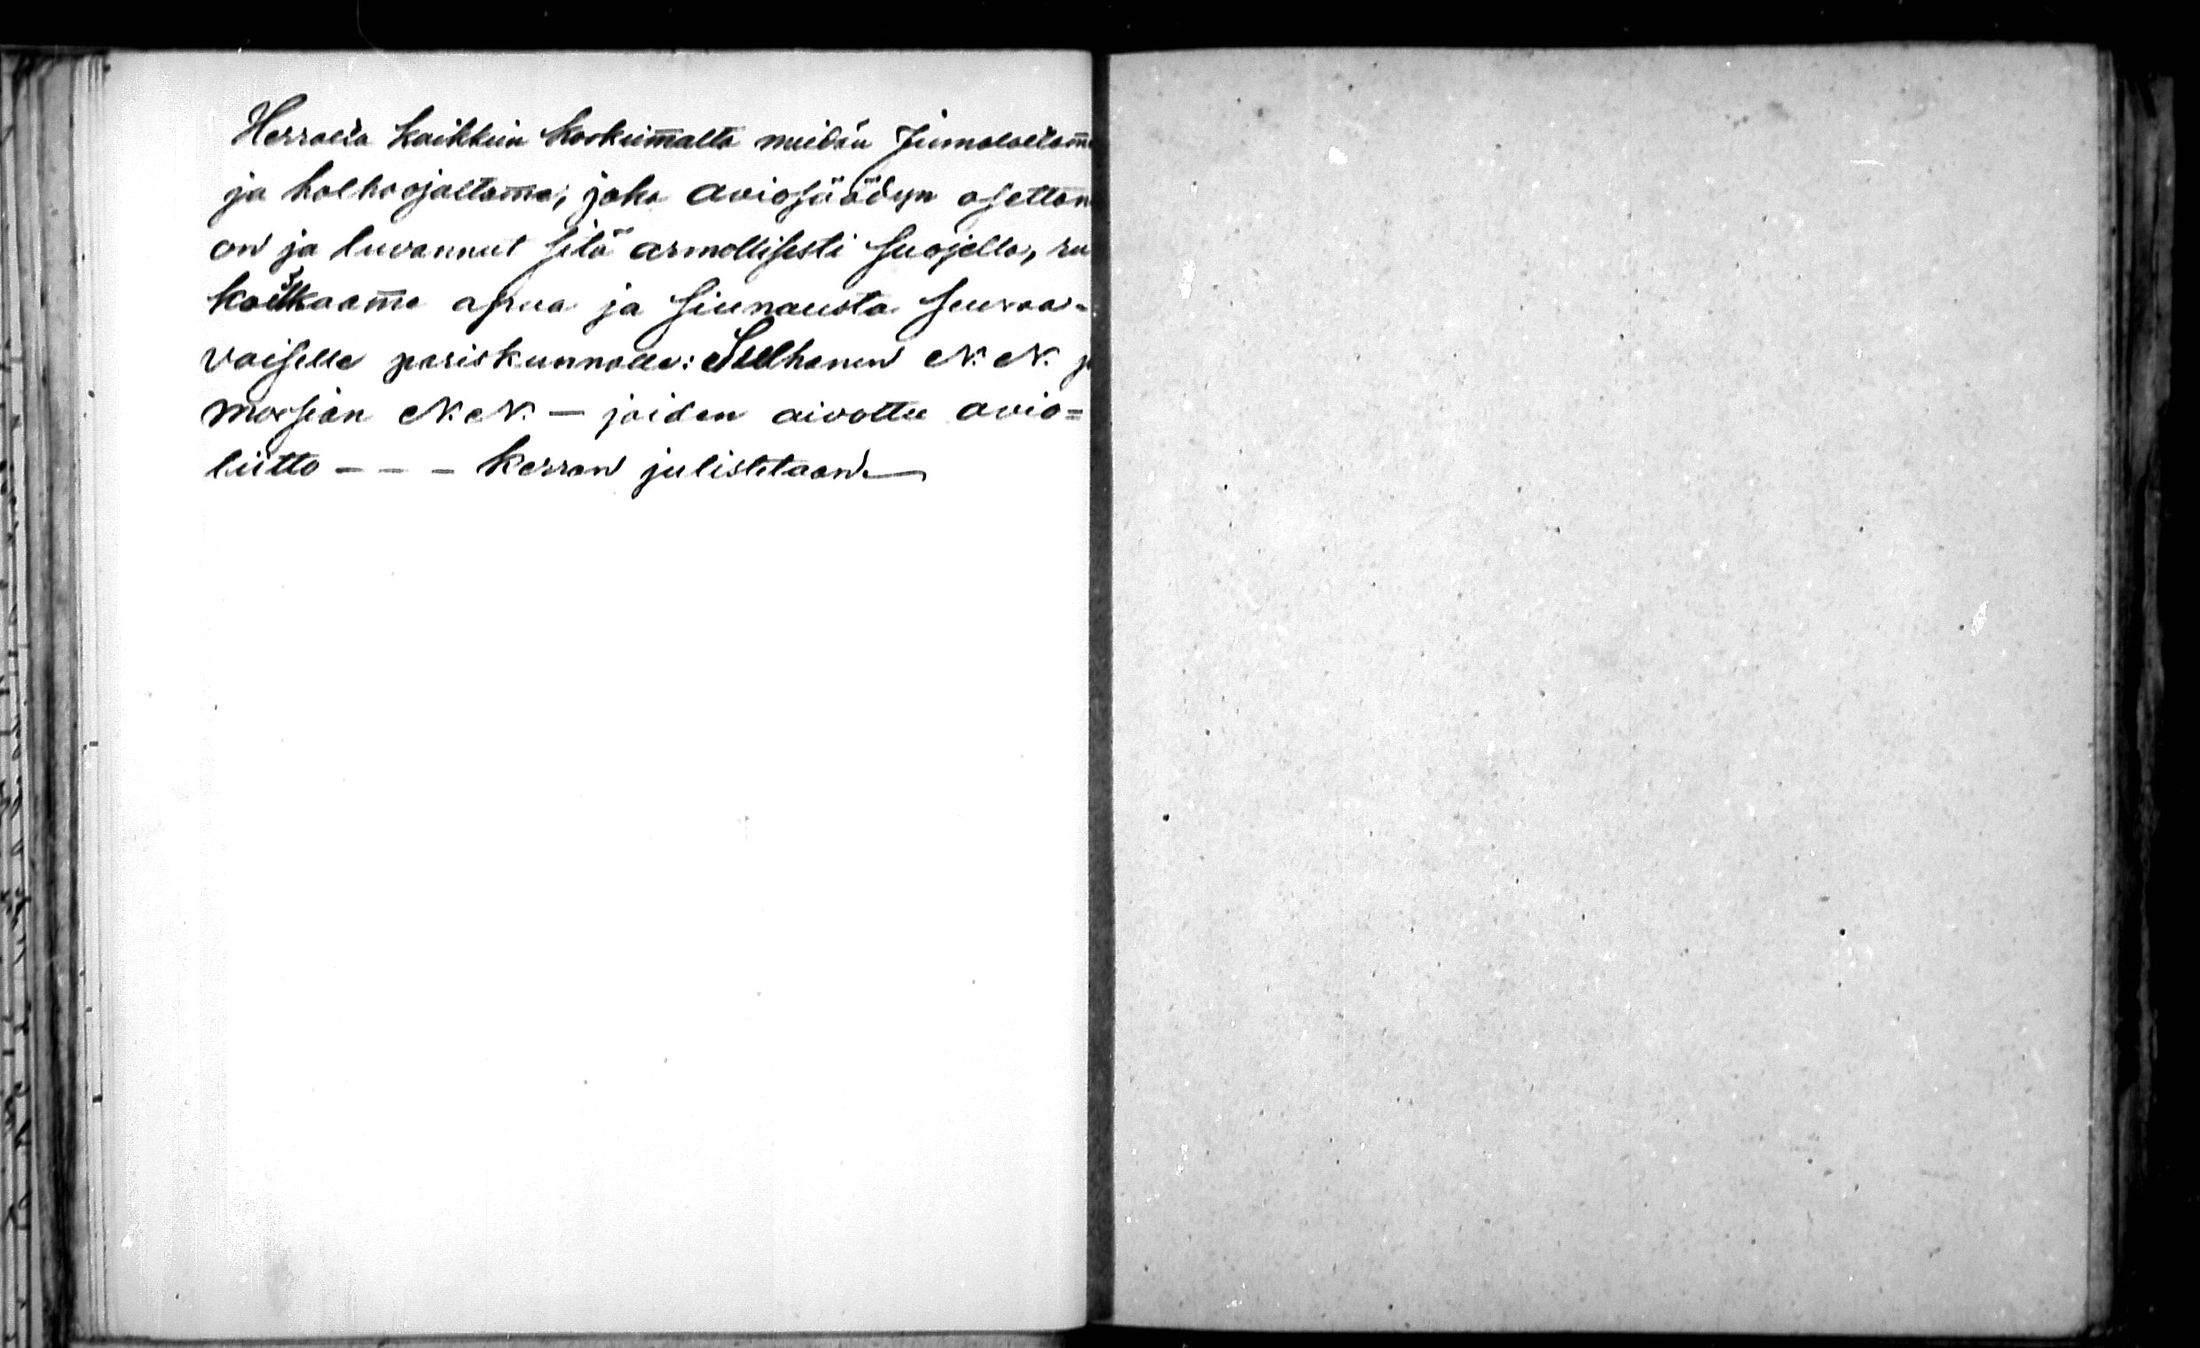 Herralta kaikkein korkeim̅alta meidän Jumalaltam̅e
ja holhoojaltam̅e, joka aviosäädyn asettan
on ja luvannut sitä armollisesti suojella, ru
koilkaam̅e apua ja siunausta seuraa-
vaiselle pariskunnalle: Sulhanen N. N. ja
morsian N. N. — joiden aivottu avio=
liitto - - - kerran julistetaan. —